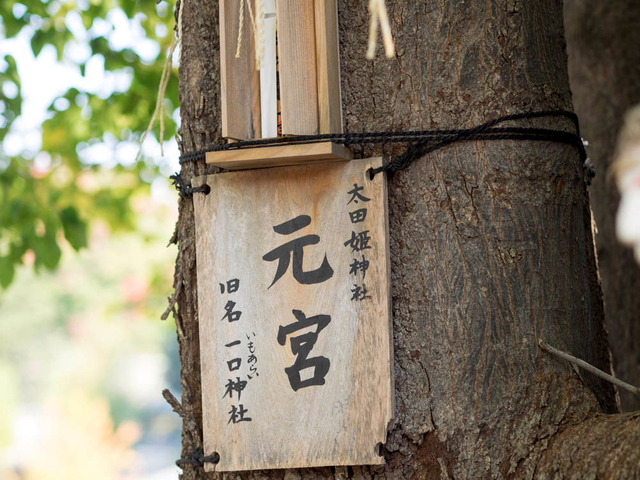 太田姫神社
元宮
旧名 一口神社
いもあらい